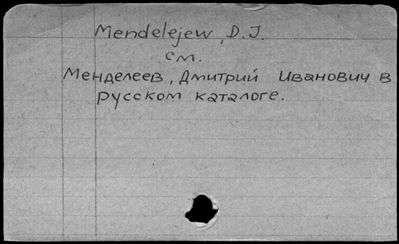 Mendelejew, D.J.
см.
Менделеев, Дмитрий Иванович в
русском каталоге.